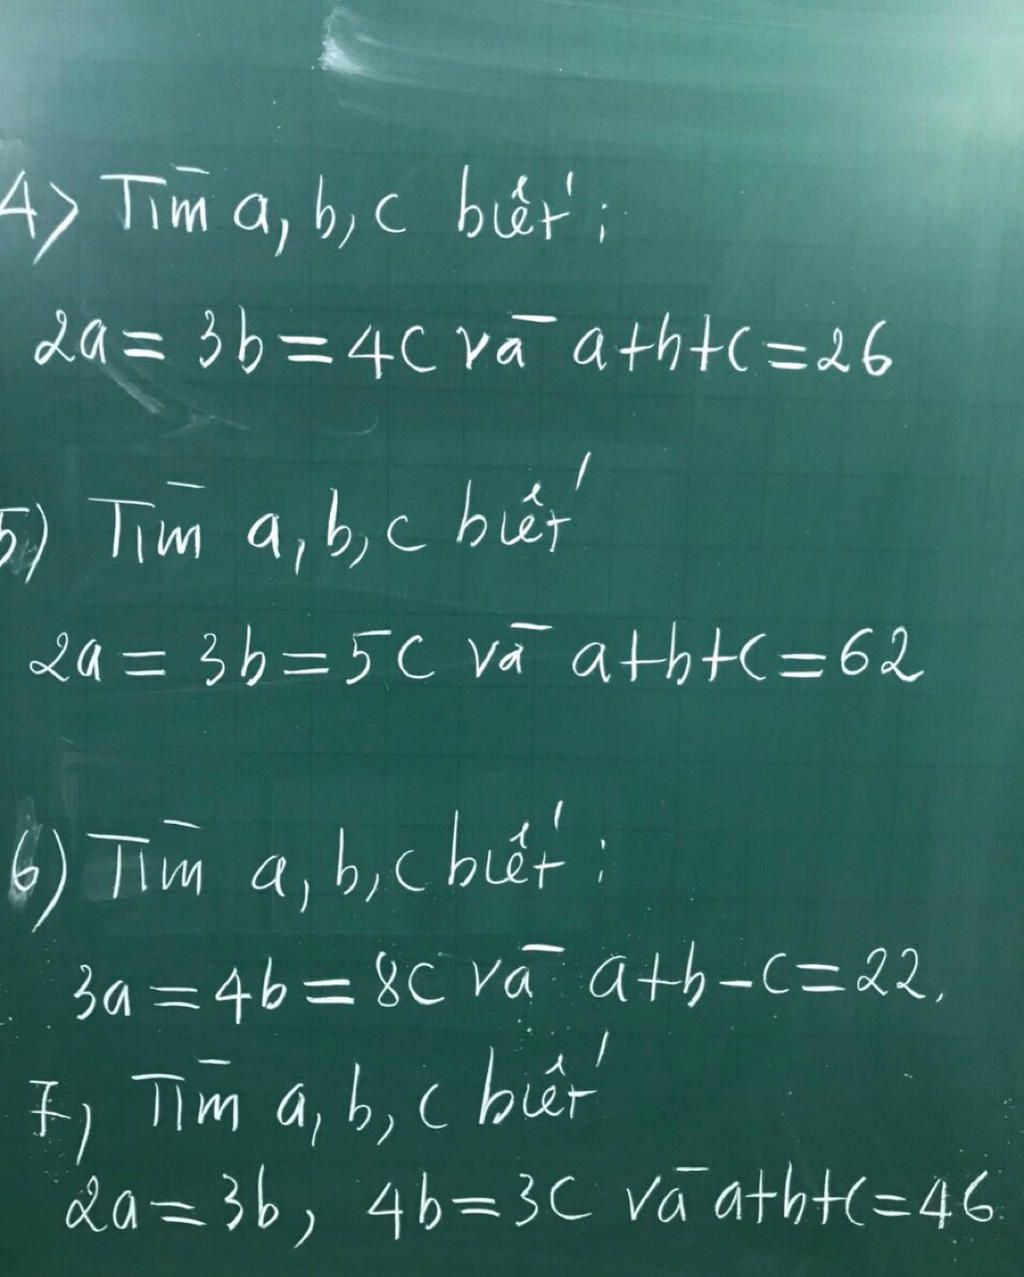 4) Tìm a, b, c biết:
2a = 3b = 4c và a+b+c = 26
5) Tìm a, b, c biết
2a = 3b = 5c và a+b+c = 62
6) Tìm a, b, c biết:
3a = 4b = 8c và a+b-c = 22.
7, Tìm a, b, c biết
2a = 3b, 4b = 3c và a+b+c = 46